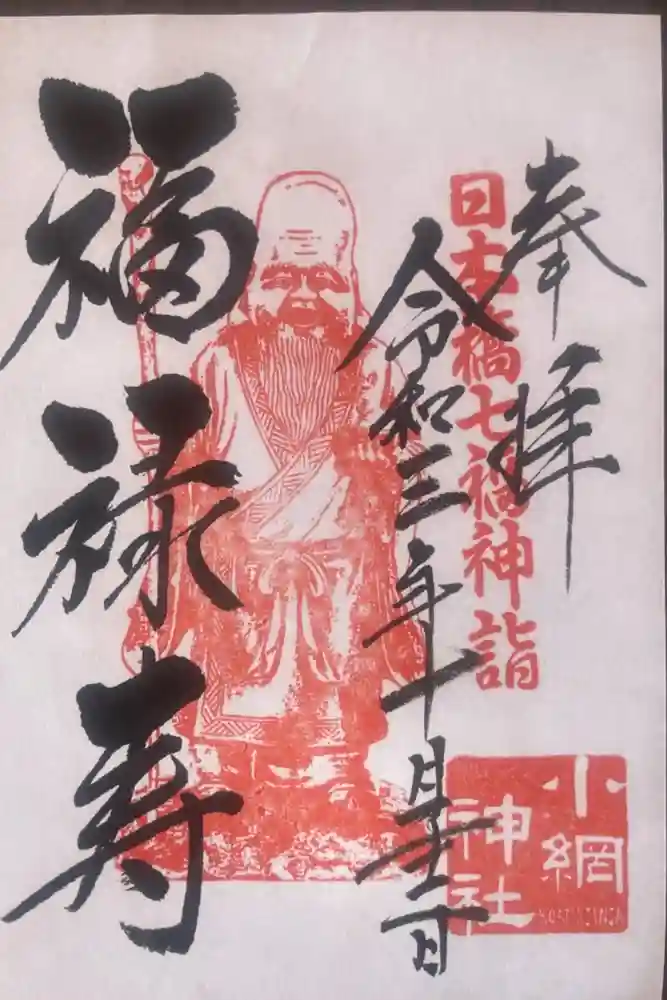 奉拝
日本橋七福神詣
小網
神社
KOAMI JINJA
令和三年十月日
福禄寿